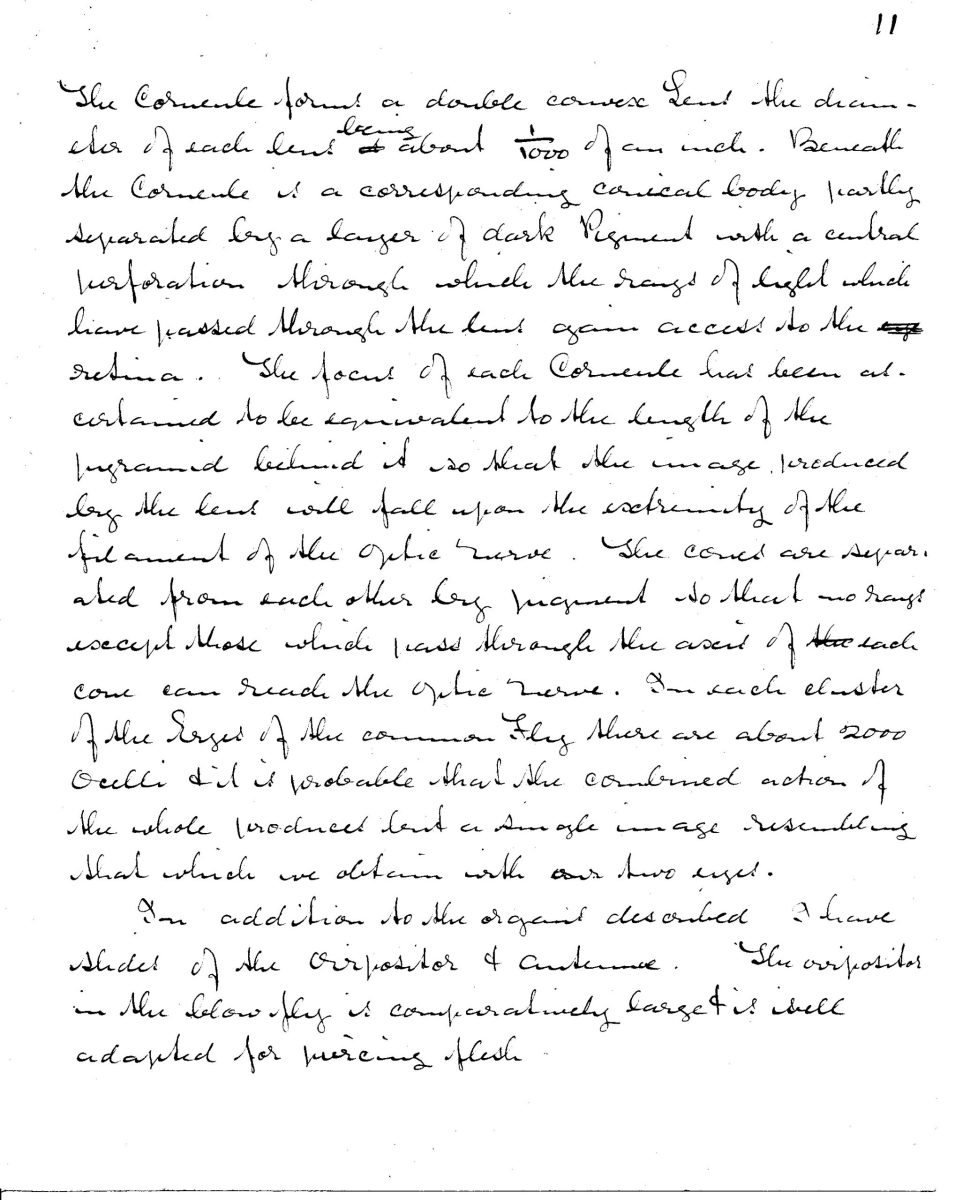 11
The Corneule forms a double convex Lens the diam-
eter of each lens being about 1/1000 of an inch. Beneath
the Corneule is a corresponding conical body partly
separated by a layer of dark Pigment with a central
perforation through which the rays of light which
have passed through the lens gain access to the eye
retina. The focus of each Corneule has been as-
certained to be equivalent to the length of the
pyramid behind it so that the image produced
by the lens will fall upon the extremity of the
filament of the Optic Nerve. The cones are separ-
ated from each other by pigment so that no rays
except those which pass through the axis of the each
cone can reach the Optic Nerve. In each cluster
of the Eyes of the common Fly there are about 2000
Ocelli & it is probable that the combined action of
the whole produces but a single image resembling
that which we obtain with our two eyes.
In addition to the organs described I have
slides of the Ovipositor & antennæ. The ovipositor
in the blow fly is comparatively large & is well
adapted for piercing flesh